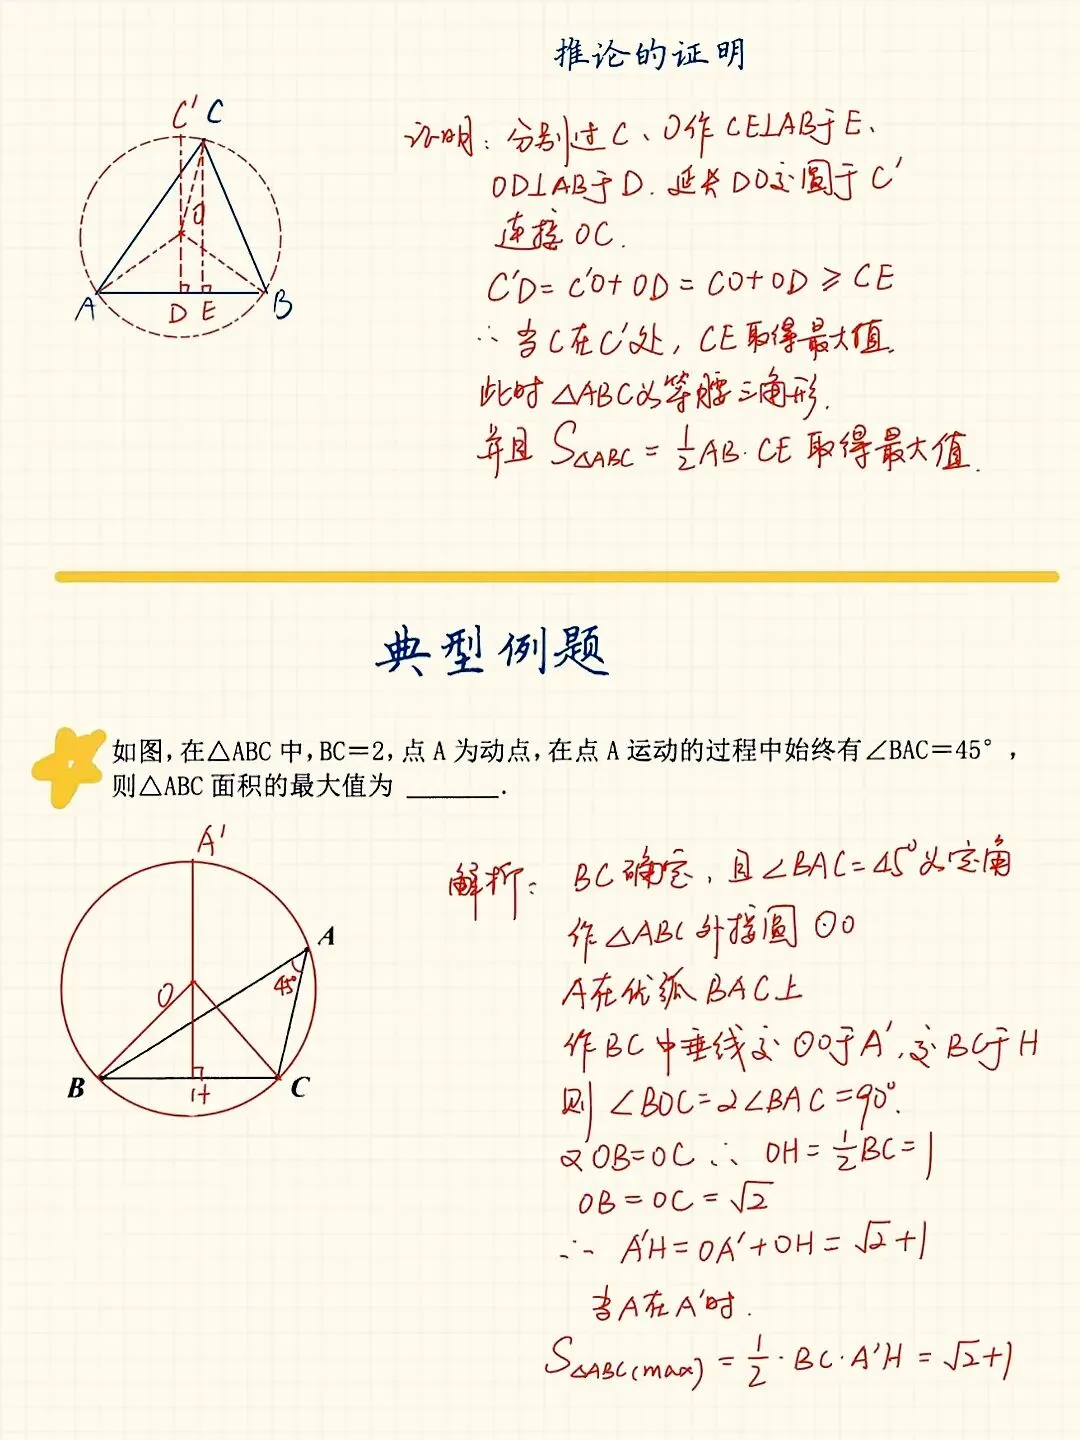 推论的证明
C' C
O
A D E B
证明：分别过C、O作CE⊥AB于E、
OD⊥AB于D. 延长DO交圆于C'
连接OC.
C'D=C'O+OD=CO+OD≥CE
∴当C在C'处，CE取得最大值.
此时△ABC为等腰三角形.
并且 S△ABC = 1/2 AB·CE 取得最大值.
典型例题
如图,在△ABC中,BC=2,点A为动点,在点A运动的过程中始终有∠BAC=45°,
则△ABC面积的最大值为 ______.
A'
A
45°
O
B H C
解析：BC确定、且∠BAC=45°为定角
作△ABC外接圆⊙O
A在优弧BAC上
作BC中垂线交⊙O于A',交BC于H
则∠BOC=2∠BAC=90°.
又OB=OC ∴ OH=1/2BC=1
OB=OC=√2
∴ A'H=OA'+OH=√2+1
当A在A'时.
S△ABC(max) = 1/2·BC·A'H = √2+1